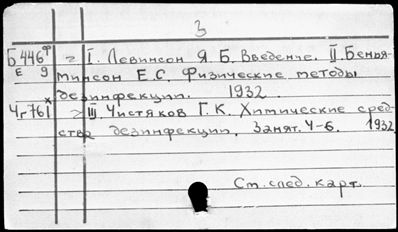 3
Б 446ф г I. Левинсон Я. Б. Введение. II. Бенья-
Е 9 минсон Е. С. Физические методы
дезинфекции. 1932.
Чг 761х г III. Чистяков Г. К. Химические сред-
ства дезинфекции. Занят. 4-6. 1932
См. след. карт.